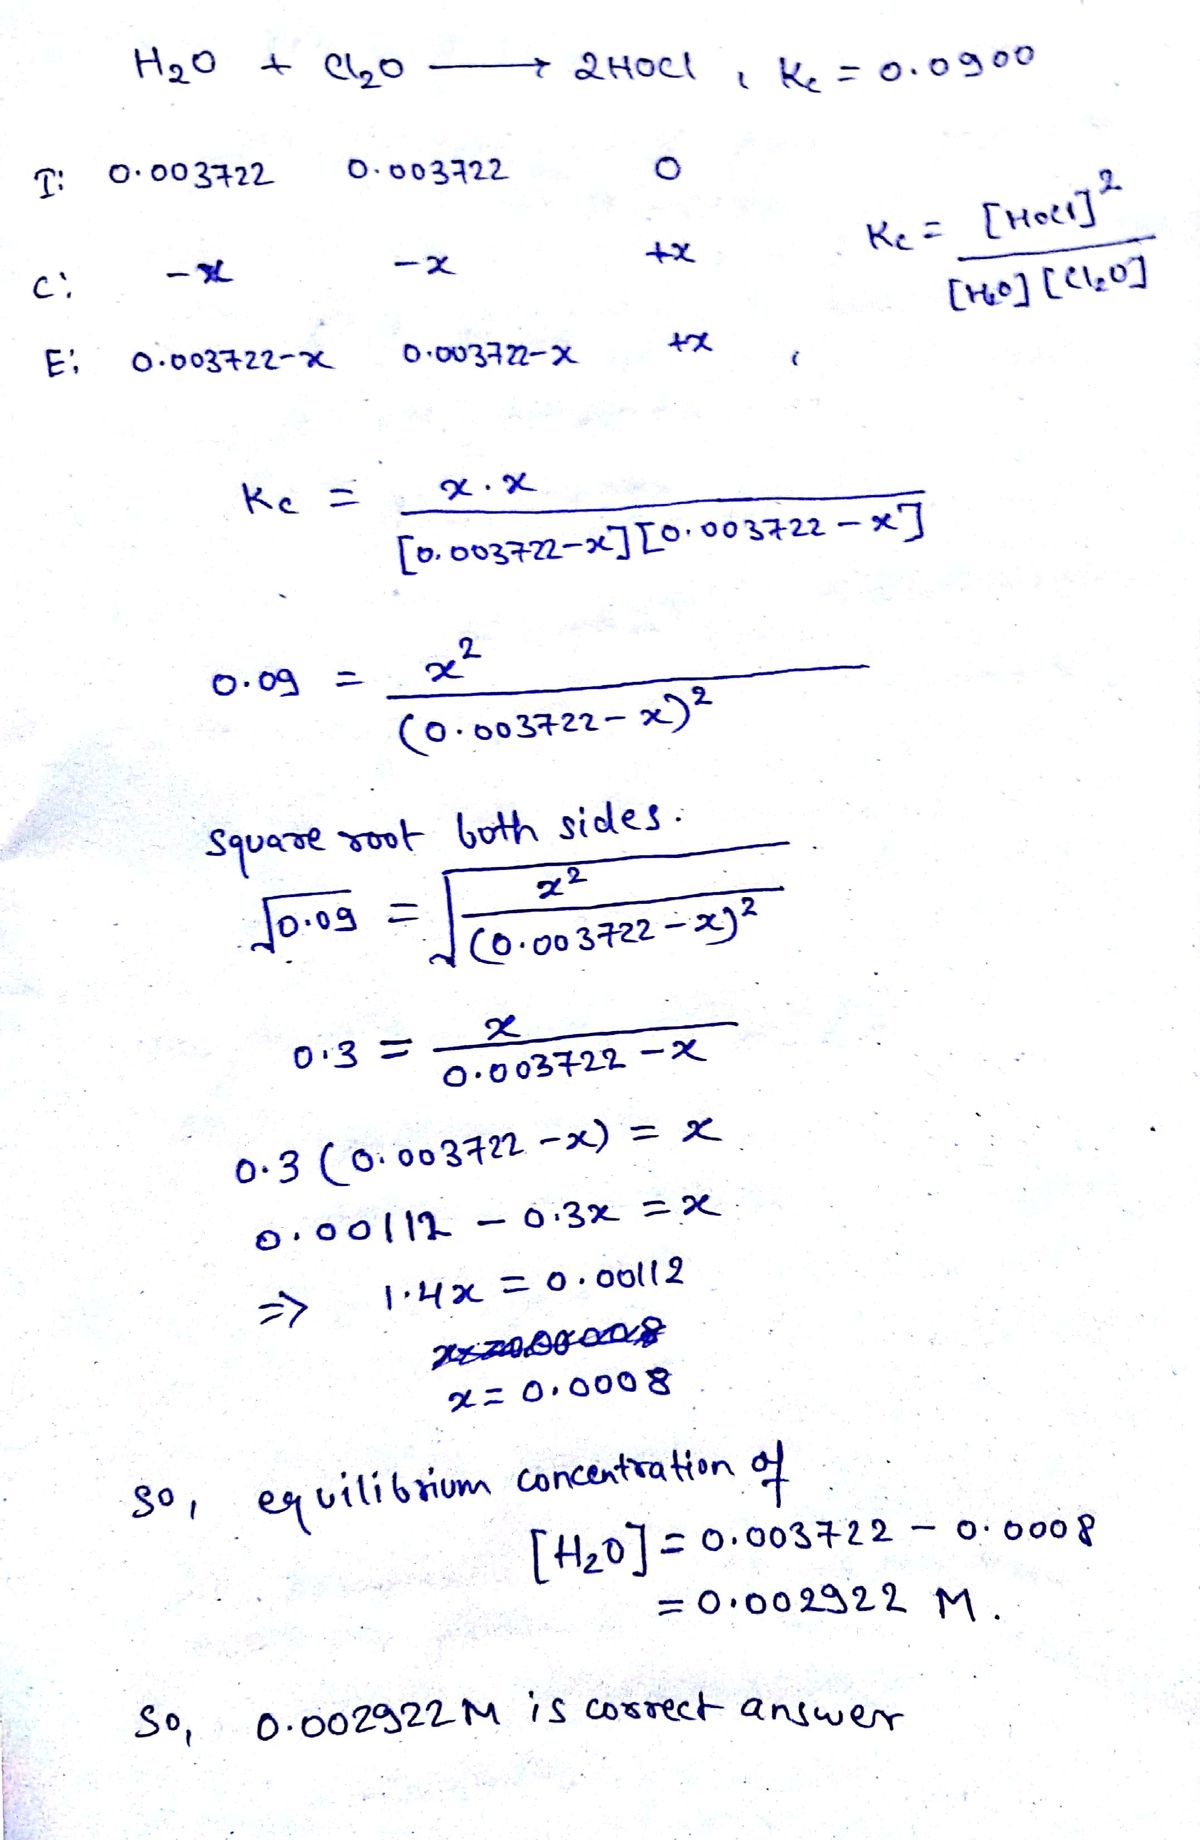 H₂O + Cl₂O ⟶ 2HOCl , Kc = 0.0900
I: 0.003722 0.003722 0
Kc = [HOCl]² / [H₂O] [Cl₂O]
C: -x -x +x
E: 0.003722-x 0.003722-x +x ,
Kc = x.x / [0.003722-x][0.003722-x]
0.09 = x² / (0.003722-x)²
square root both sides.
√0.09 = √(x² / (0.003722-x)²)
0.3 = x / 0.003722-x
0.3 (0.003722-x) = x
0.00112 - 0.3x = x
=> 1.4x = 0.00112
x = 0.0008
so, equilibrium concentration of
[H₂O] = 0.003722 - 0.0008
= 0.002922 M.
So, 0.002922M is correct answer